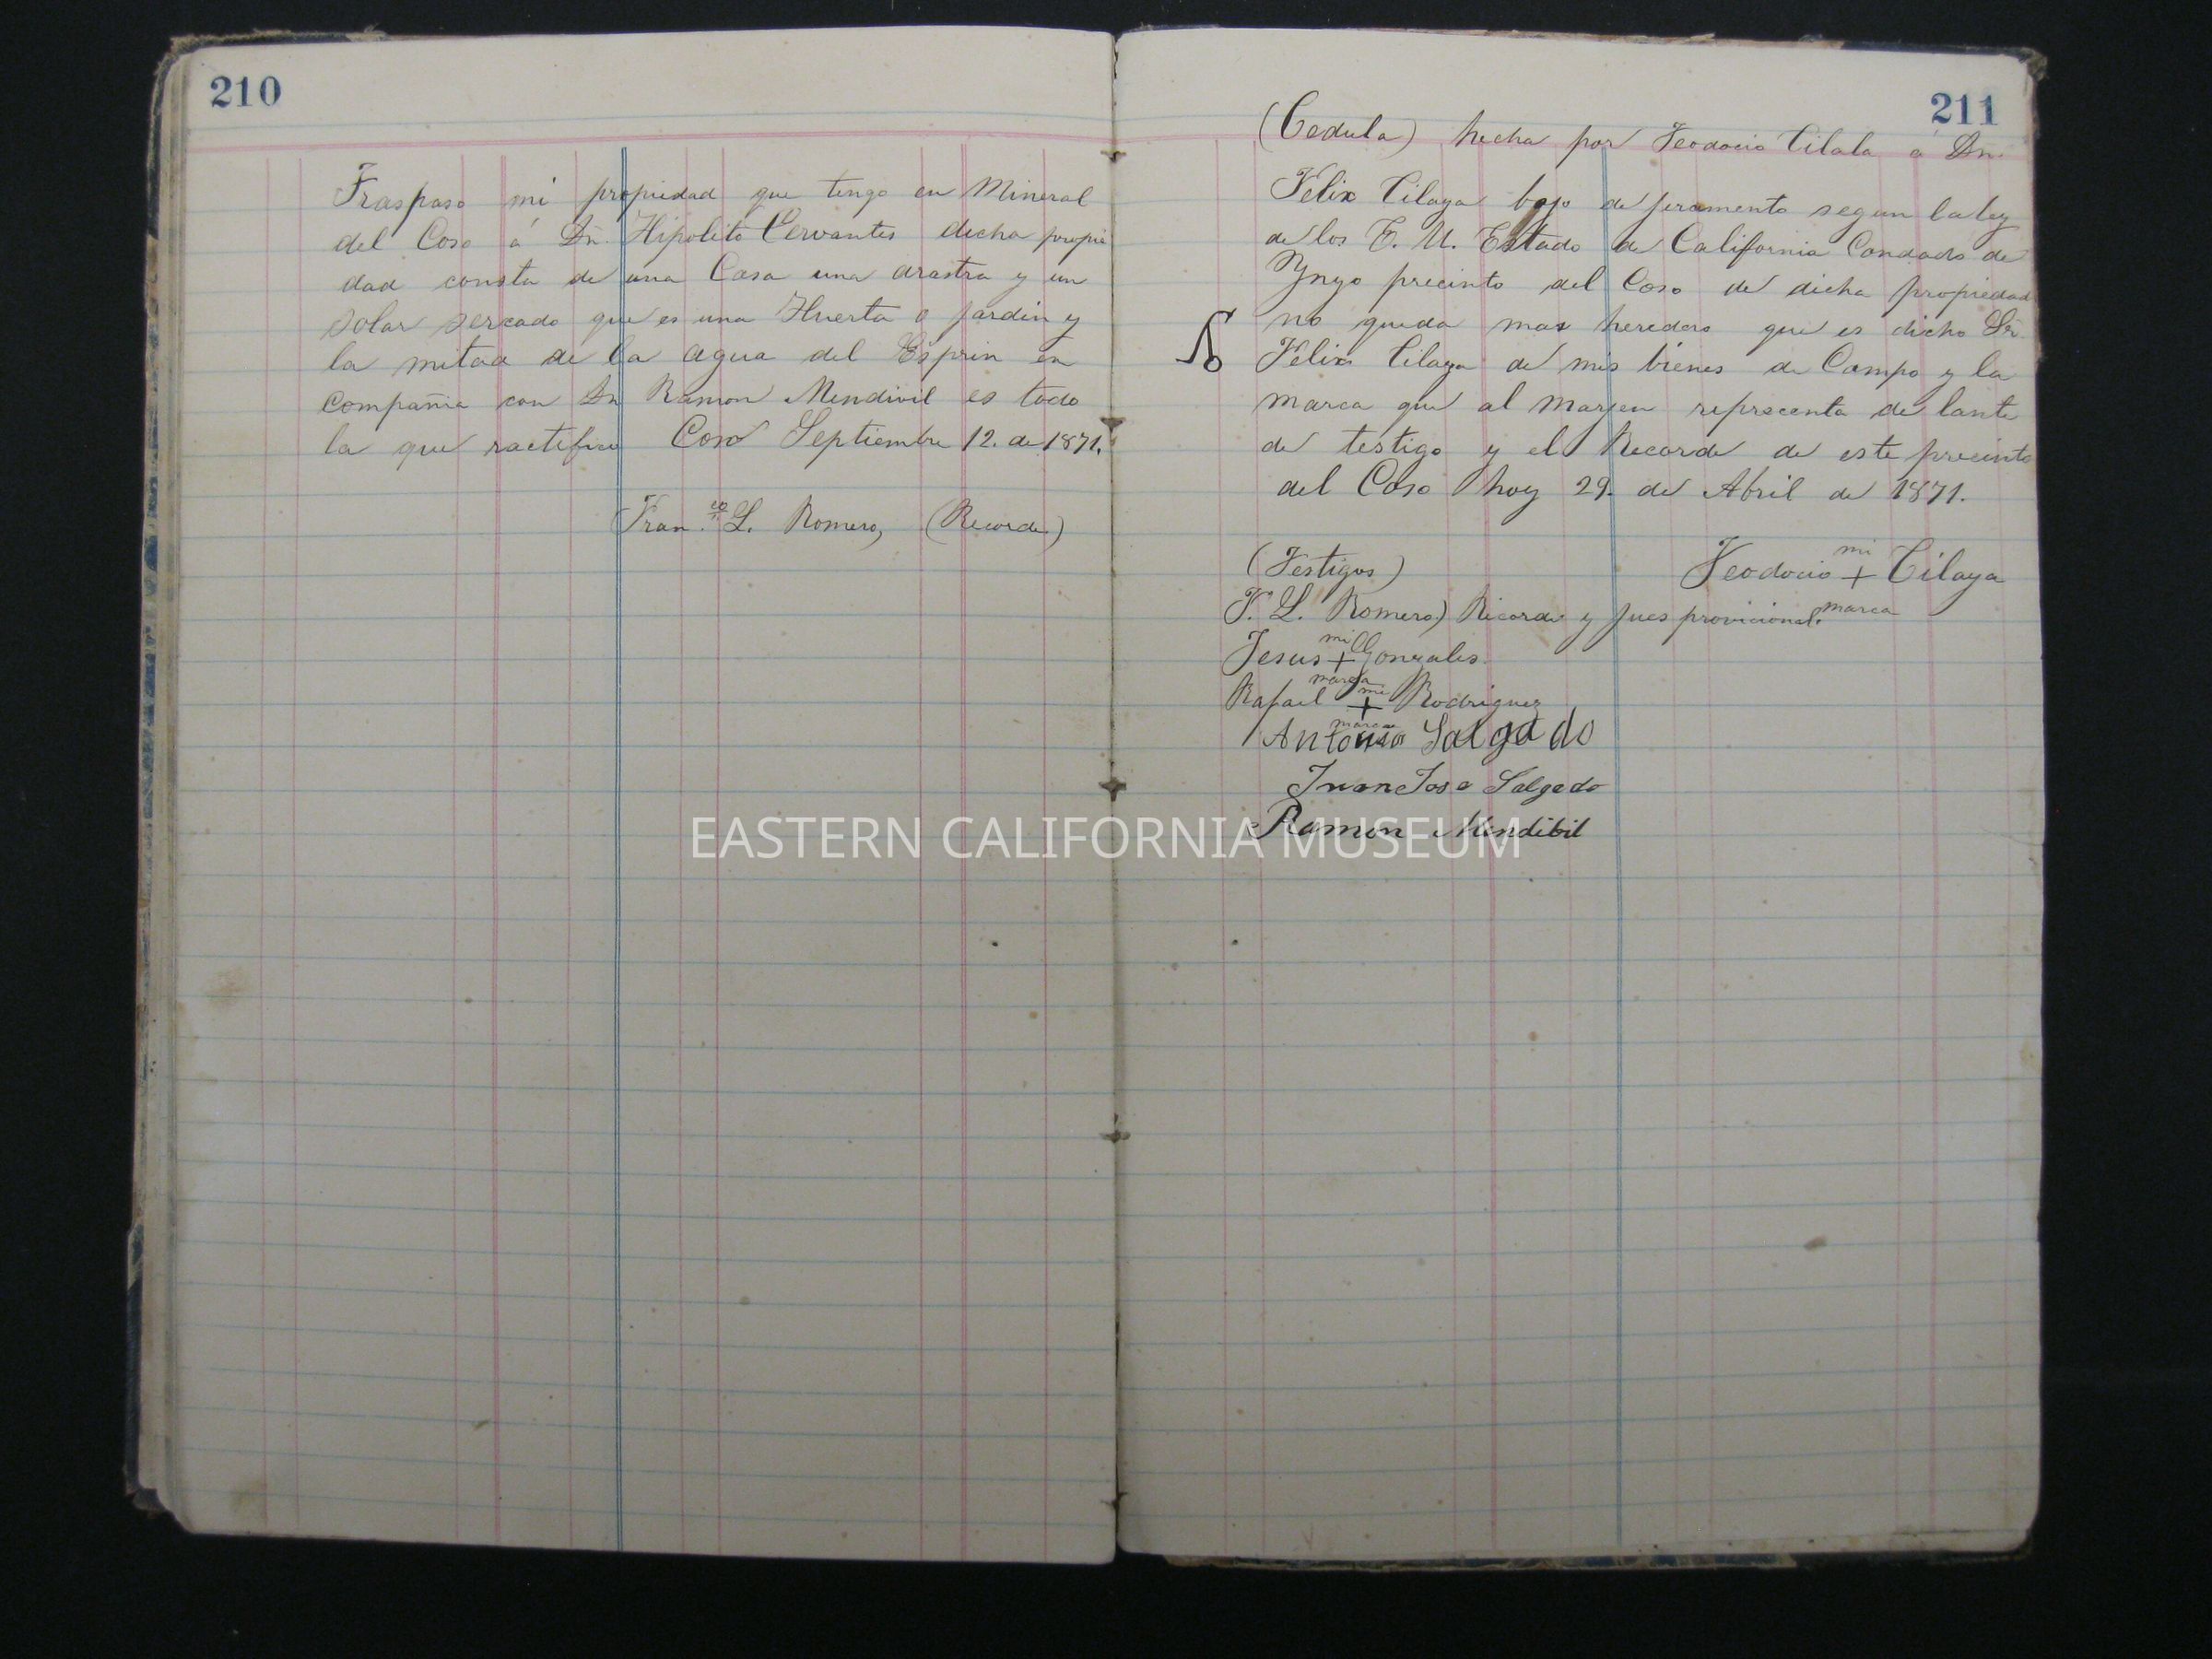 210
Traspaso mi propiedad que tengo en Mineral
del Coso á Dn. Hipolito Cervantes dicha propie
dad consta de una Casa una arastra y un
solar sercado que es una Huerta o jardin y
la mitad de la agua del Esprin en
compañia con Dn Ramon Mendivil es todo
la que ractifico Coso Septiembre 12. de 1871.
Fran.co L. Romero, (Recorde)
211
(Cedula) hecha por Teodocio Cilala á Dn.
Felix Cilaya bajo de juramento segun la ley
de los E. U. Estado de California Condado de
Ynyo precinto del Coso de dicha propiedad
no queda mas heredero que es dicho Sr.
Felix Cilaya de mis bienes de Campo y la
marca que al marjen reprecenta de lante
de testigo y el Recorde de este precinto
del Coso hoy 29. de Abril de 1871.
mi
(Testigos) Teodocio + Cilaya
marca
F. L. Romero) Ricorde y jues provicional.
mi
Jesus + Gonzales.
marca
mi
Rafael + Rodriguez
marca
Antonio Salgado
Juan Jose Salgado
Ramon Mendibil
EASTERN CALIFORNIA MUSEUM